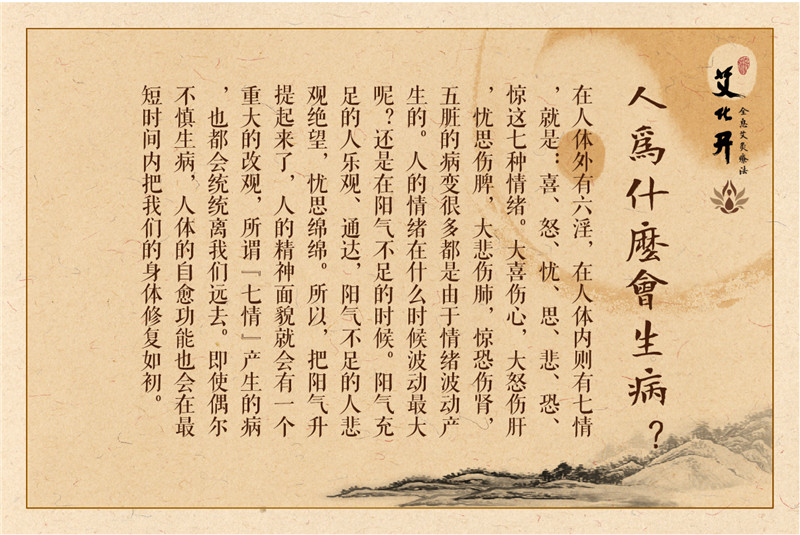 艾化开
全息艾灸療法
人爲什麽會生病？
在人体外有六淫，在人体内则有七情
，就是：喜、怒、忧、思、悲、恐、
惊这七种情绪。大喜伤心，大怒伤肝
，忧思伤脾，大悲伤肺，惊恐伤肾，
五脏的病变很多都是由于情绪波动产
生的。人的情绪在什么时候波动最大
呢？还是在阳气不足的时候。阳气充
足的人乐观、通达，阳气不足的人悲
观绝望，忧思绵绵。所以，把阳气升
提起来了，人的精神面貌就会有一个
重大的改观，所谓『七情』产生的病
，也都会统统离我们远去。即使偶尔
不慎生病，人体的自愈功能也会在最
短时间内把我们的身体修复如初。